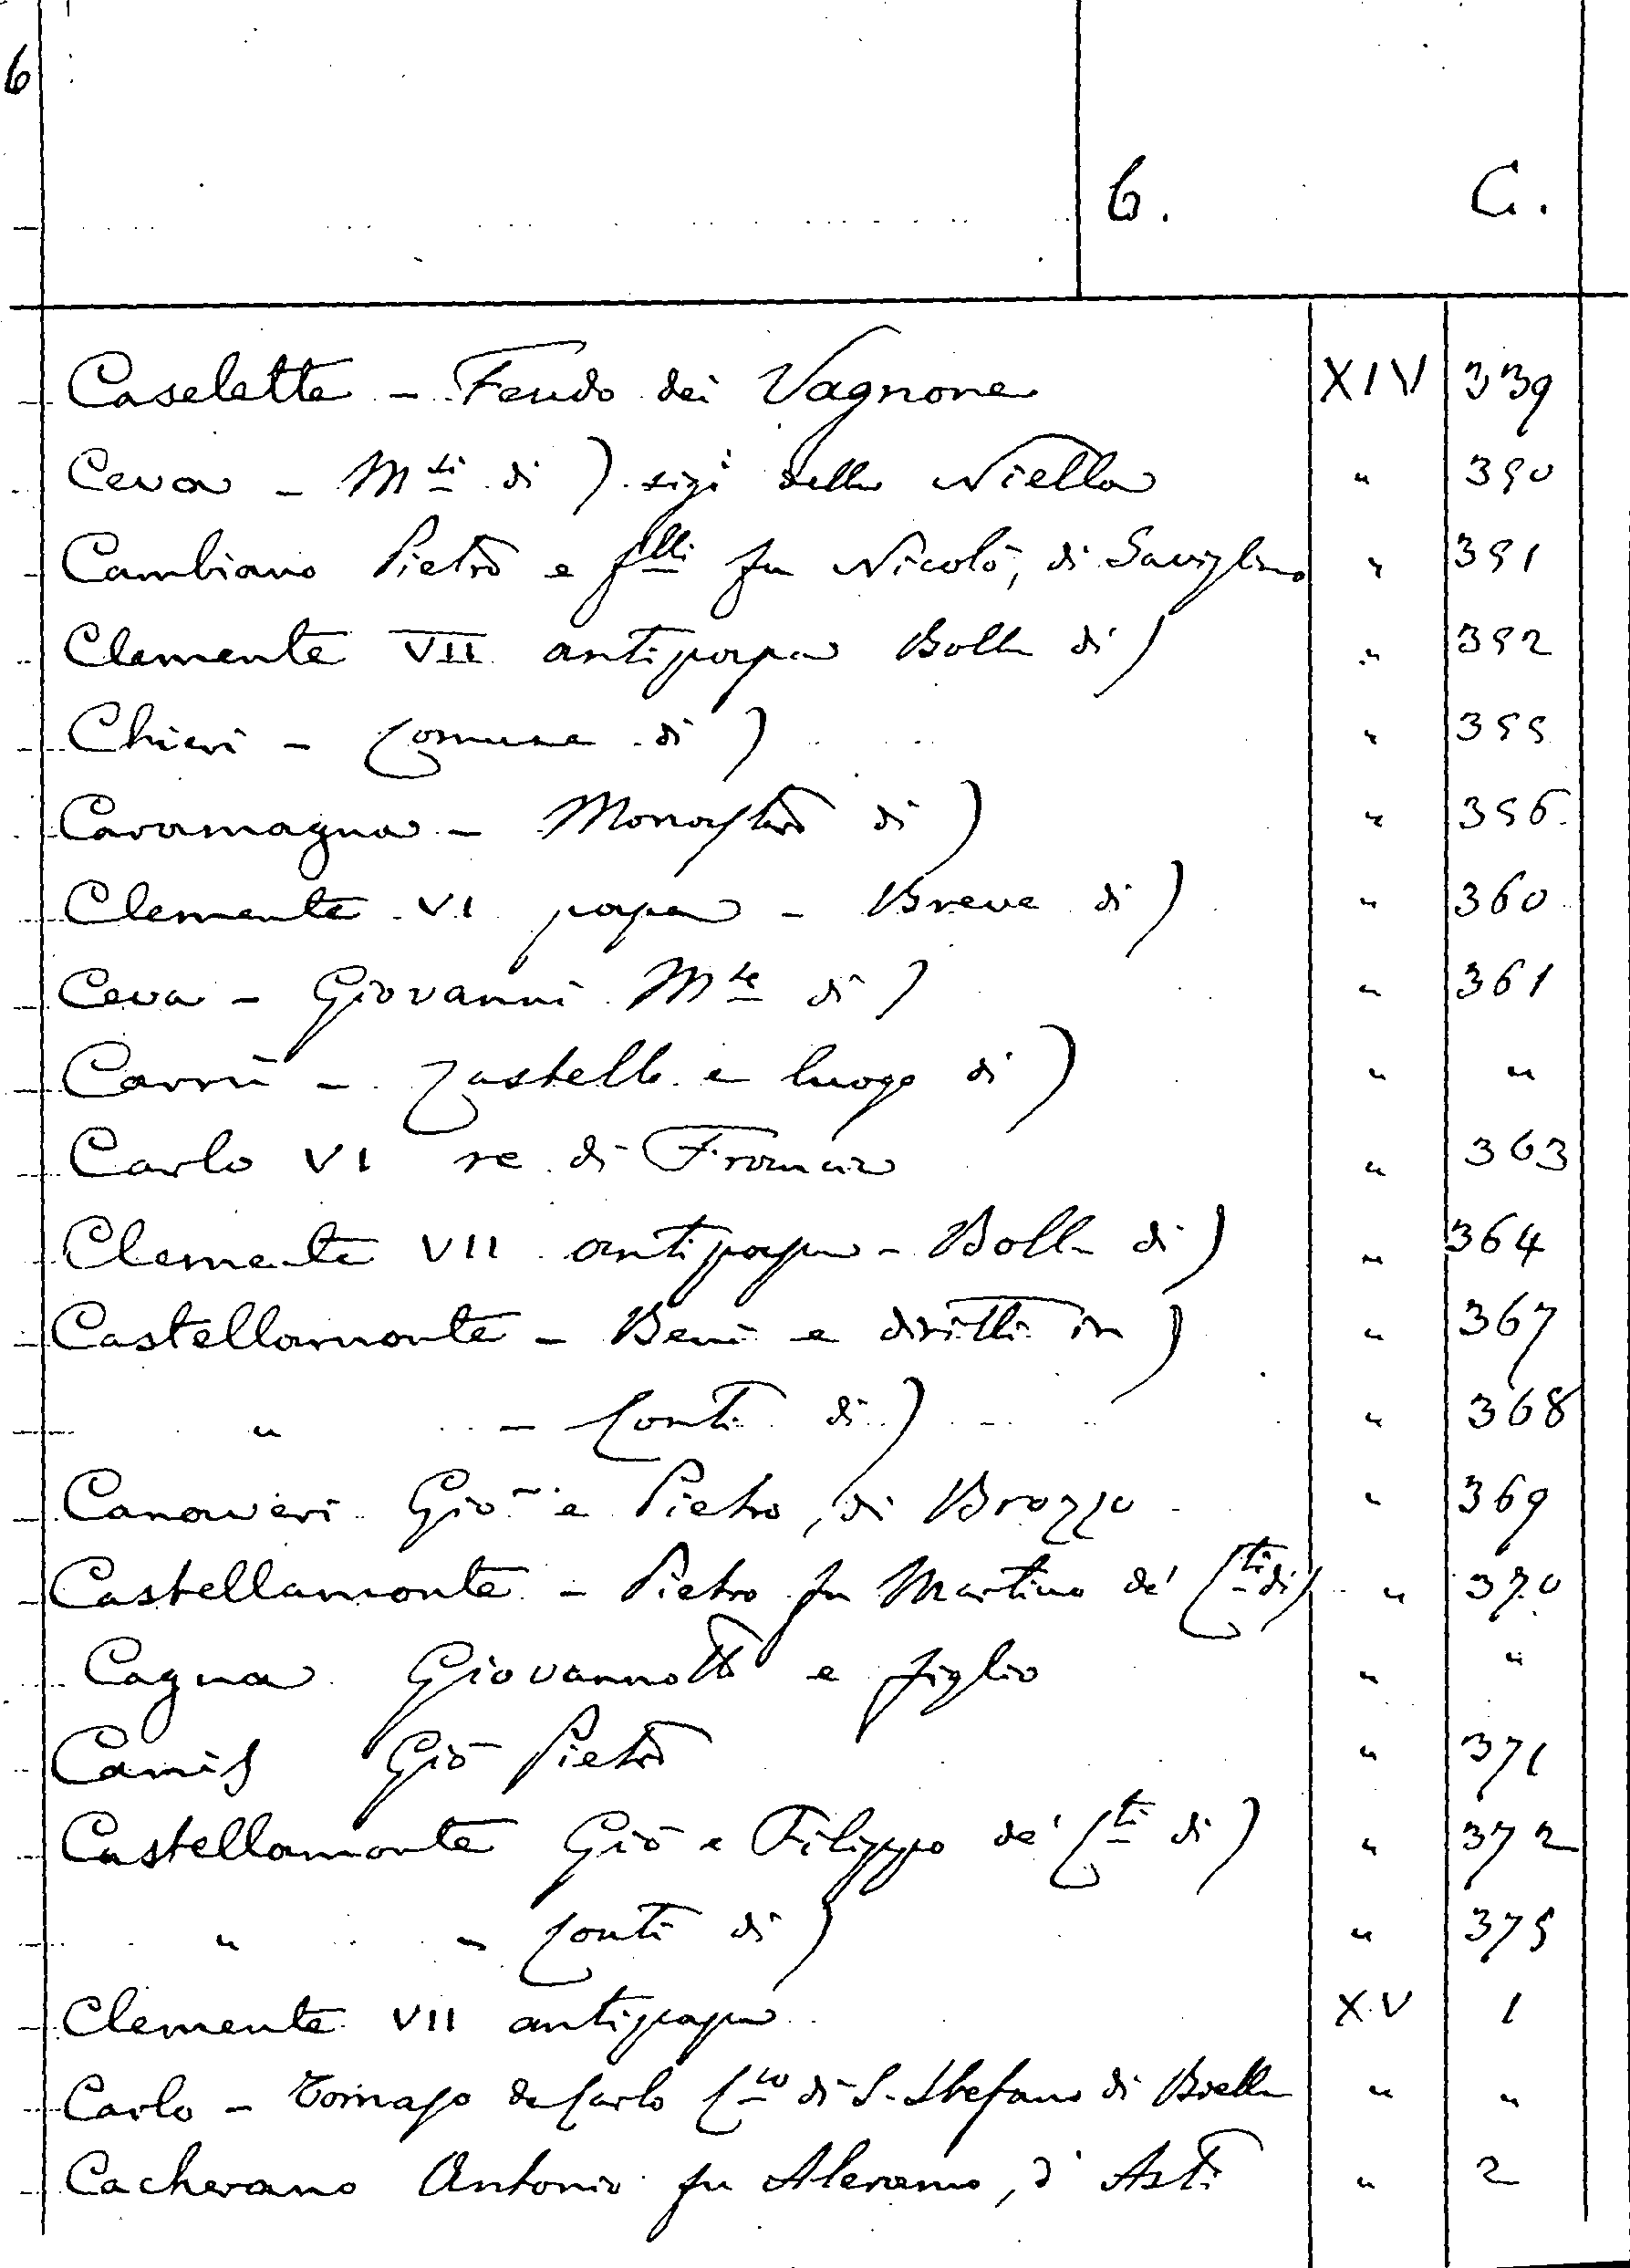 6
6. C.
Caselette - Feudo dei Vagnone XIV 339
Ceva - M.ti di ) sigi della Niella " 350
Cambiano Pietro e flli fu Nicolò, di Savigliano " 351
Clemente VII antipapa Bolla di ) " 352
Chieri - Comune di ) " 355
Caramagna - Monastero di ) " 356
Clemente VI papa - Breve di ) " 360
Ceva - Giovanni Mse di ) " 361
Carrù - Castello e luogo di ) " "
Carlo VI re di Francia " 363
Clemente VII antipapa - Bolla di ) " 364
Castellamonte - Beni e diritti in ) " 367
" - Conti di ) " 368
Canaveri Gio e Pietro, di Brozzo " 369
Castellamonte - Pietro fu Martino de' Cti di ) " 370
Cagna Giovannotto e figlio " "
Camis Gio Pietro " 371
Castellamonte Gio e Filippo de' Cti di ) " 372
" - Conti di ) " 375
Clemente VII antipapa XV 1
Carlo - Tomaso de Carlo Cco di S. Stefano di Biella " "
Cacherano Antonio fu Aleramo, d'Asti " 2